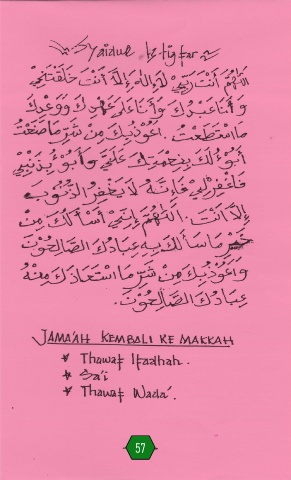 Syaidul Istigfar
اَللّٰهُمَّ أَنْتَ رَبِّيْ لَا إِلٰهَ إِلَّا أَنْتَ خَلَقْتَنِيْ
وَأَنَا عَبْدُكَ وَأَنَا عَلَى عَهْدِكَ وَوَعْدِكَ
مَا اسْتَطَعْتُ. أَعُوْذُبِكَ مِنْ شَرِّ مَا صَنَعْتُ
أَبُوْءُ لَكَ بِنِعْمَتِكَ عَلَيَّ وَأَبُوْءُ بِذَنْبِيْ
فَاغْفِرْلِيْ فَإِنَّهُ لَا يَغْفِرُ الذُّنُوْبَ
إِلَّا أَنْتَ. اَللّٰهُمَّ إِنِّيْ أَسْأَلُكَ مِنْ
خَيْرِ مَا سَأَلَكَ بِهِ عِبَادُكَ الصَّالِحُوْنَ
وَأَعُوْذُبِكَ مِنْ شَرِّ مَا اسْتَعَاذَكَ مِنْهُ
عِبَادُكَ الصَّالِحُوْنَ.
JAMA'AH KEMBALI KE MAKKAH
* Thawaf Ifadhah.
* Sa'i
* Thawaf Wada'.
57